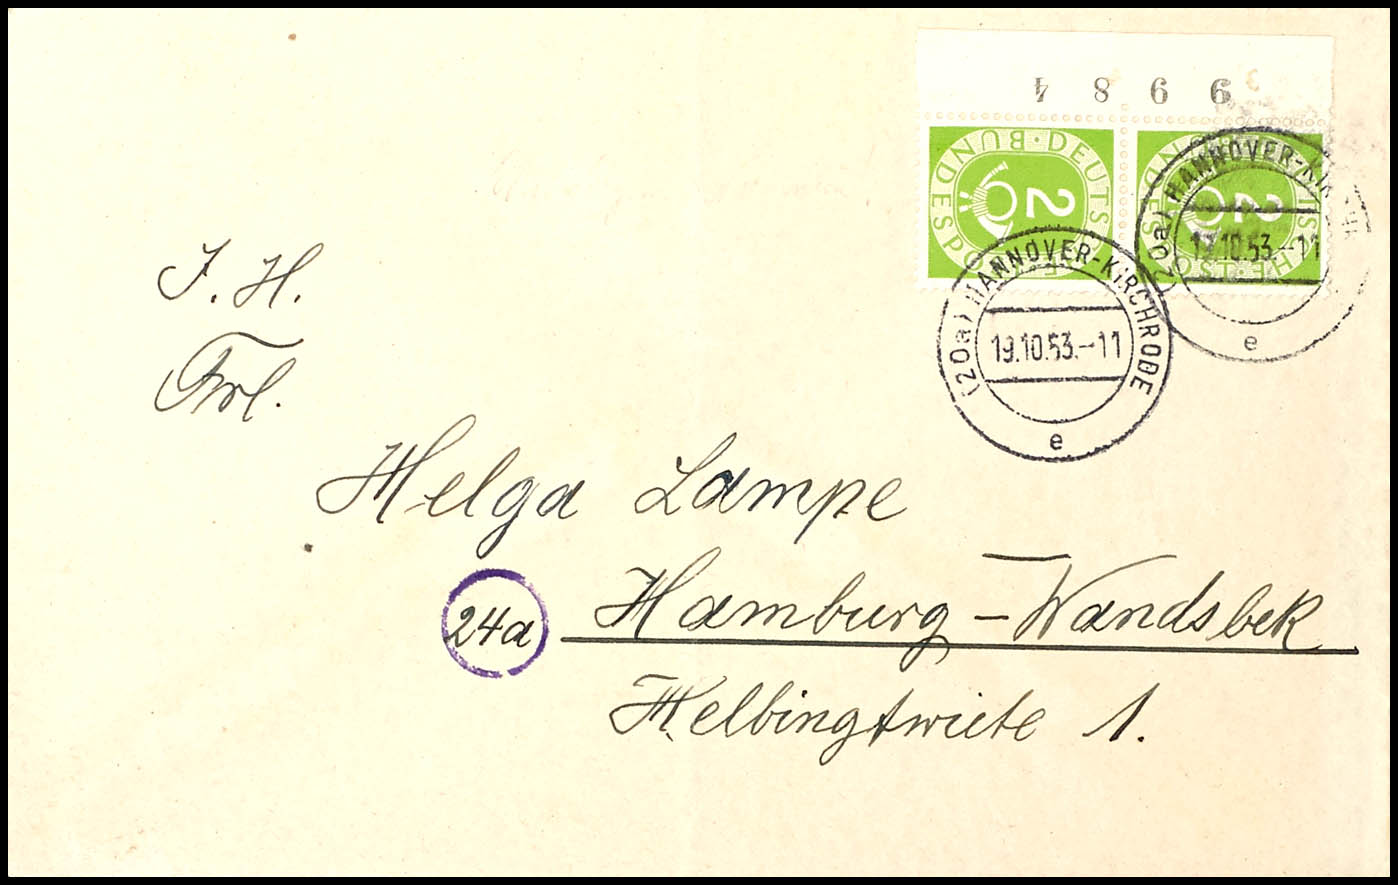 4 8 9 9
DEUTSCHE BUNDESPOST
2
DEUTSCHE BUNDESPOST
2
(20a) HANNOVER-KIRCHRODE
19.10.53.-11
e
(20a) HANNOVER-KIR
19.10.53.-11
e
J. H.
Frl.
Helga Lampe
24a Hamburg-Wandsbek
Helbingtwiete 1.